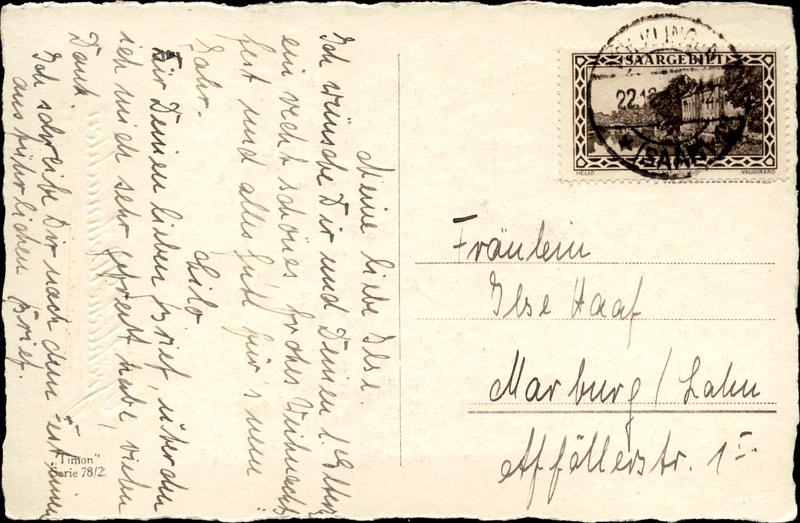 Meine liebe Ilse.
Ich wünsche Dir und Deinen l. Eltern
ein recht schönes frohes Weihnachts
fest und alles Gute für's neue
Jahr.
Lilo
Für Deinen lieben Brief, über den
ich mich sehr gefreut habe, vielen
Dank.
Ich schreibe Dir nach dem Fest einen
ausführlichen Brief.
"Timon"
Serie 78/2
VÖLKLINGEN
22.12
(SAAR)
SAARGEBIET
HELIO VAUGIRARD
Fräulein
Ilse Haaf
Marburg / Lahn
Afföllerstr. 1